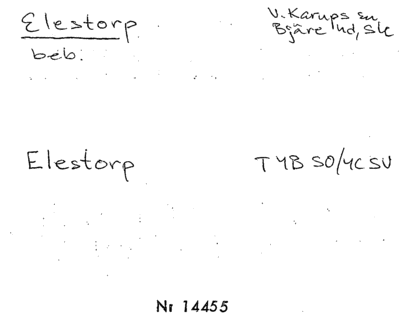 Elestorp
V. Karups sn
Bjäre hd, Sk
beb.
Elestorp
T 4B SO/4C SV
Nr 14455